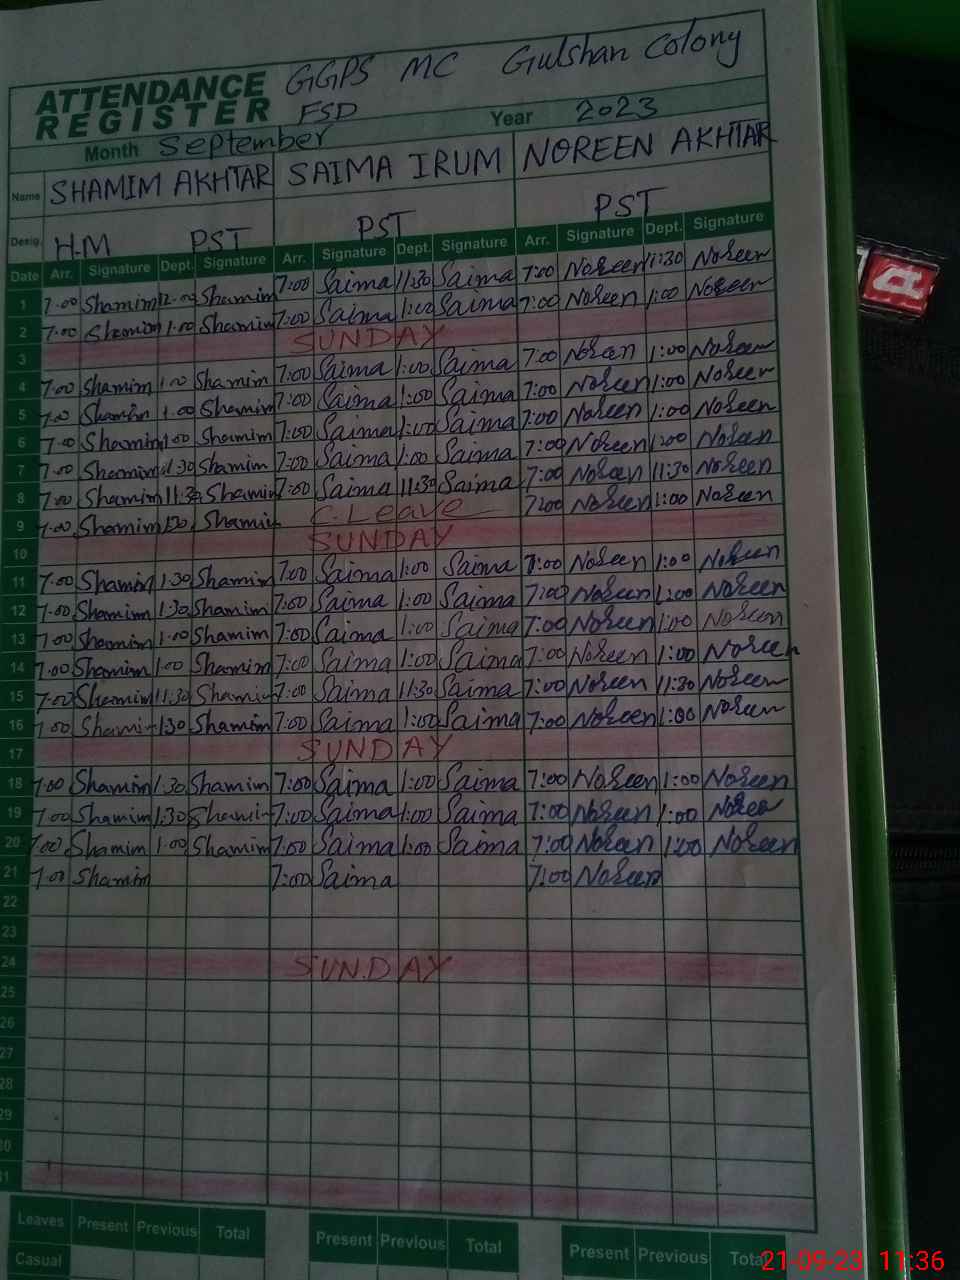 ATTENDANCE REGISTER GGPS MC Gulshan Colony FSD
Month September Year 2023
Name SHAMIM AKHTAR SAIMA IRUM NOREEN AKHTAR
Desig. H-M PST PST PST
Date Arr. Signature Dept. Signature Arr. Signature Dept. Signature Arr. Signature Dept. Signature
1 7.00 Shamim 12.00 Shamim 7:00 Saima 11:30 Saima 7:00 Noreen 11:30 Noreen
2 7:00 Shamim 1.00 Shamim 7:00 Saima 1:00 Saima 7:00 Noreen 1:00 Noreen
3 SUNDAY
4 7.00 Shamim 1.00 Shamim 7:00 Saima 1:00 Saima 7:00 Noreen 1:00 Noreen
5 7.00 Shamim 1.00 Shamim 7:00 Saima 1:00 Saima 7:00 Noreen 1:00 Noreen
6 7.00 Shamim 1.00 Shamim 7:00 Saima 1:00 Saima 7:00 Noreen 1:00 Noreen
7 7.00 Shamim 1.30 Shamim 7:00 Saima 1:00 Saima 7:00 Noreen 1:00 Noreen
8 7.00 Shamim 11:30 Shamim 7:00 Saima 11:30 Saima 7:00 Noreen 11:30 Noreen
9 7.00 Shamim Shamim C. Leave 7:00 Noreen 1:00 Noreen
10 SUNDAY
11 7.00 Shamim 1:30 Shamim 7:00 Saima 1:00 Saima 7:00 Noreen 1:00 Noreen
12 7.00 Shamim 1:30 Shamim 7:00 Saima 1:00 Saima 7:00 Noreen 1:00 Noreen
13 7.00 Shamim 1.00 Shamim 7:00 Saima 1:00 Saima 7:00 Noreen 1:00 Noreen
14 7.00 Shamim 1.00 Shamim 7:00 Saima 1:00 Saima 7:00 Noreen 1:00 Noreen
15 7.00 Shamim 11:30 Shamim 7:00 Saima 11:30 Saima 7:00 Noreen 11:30 Noreen
16 7.00 Shamim 1:30 Shamim 7:00 Saima 1:00 Saima 7:00 Noreen 1:00 Noreen
17 SUNDAY
18 7.00 Shamim 1:30 Shamim 7:00 Saima 1:00 Saima 7:00 Noreen 1:00 Noreen
19 7.00 Shamim 1:30 Shamim 7:00 Saima 1:00 Saima 7:00 Noreen 1:00 Noreen
20 7.00 Shamim 1:00 Shamim 7:00 Saima 1:00 Saima 7:00 Noreen 1:00 Noreen
21 7.00 Shamim 7:00 Saima 7:00 Noreen
22
23
24 SUNDAY
25
26
27
28
29
30
31
Leaves Present Previous Total Present Previous Total Present Previous Total
Casual
21-09-23 11:36